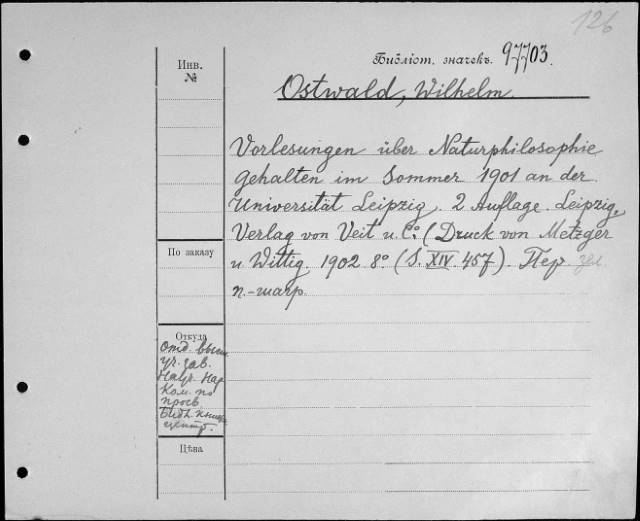 126
Библіот. значекъ. 97703.
Инв.
№
Ostwald, Wilhelm.
Vorlesungen über Naturphilosophie
gehalten im Sommer 1901 an der
Universität Leipzig. 2 Auflage. Leipzig,
Verlag von Veit u. C° (Druck von Metzger
u. Wittig. 1902 8° (S. XIV. 457). Пер.
п.-шагр.
По заказу
Откуда
Отд. высш
уч. зав.
Науч. Нар
Ком. по
просв.
Библ. книж
центр.
Цѣна